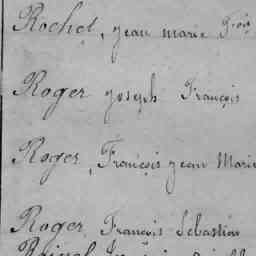 Rochet, jean marie frois
Roger joseph François
Roger, François jean Marie
Roger François Sébastien